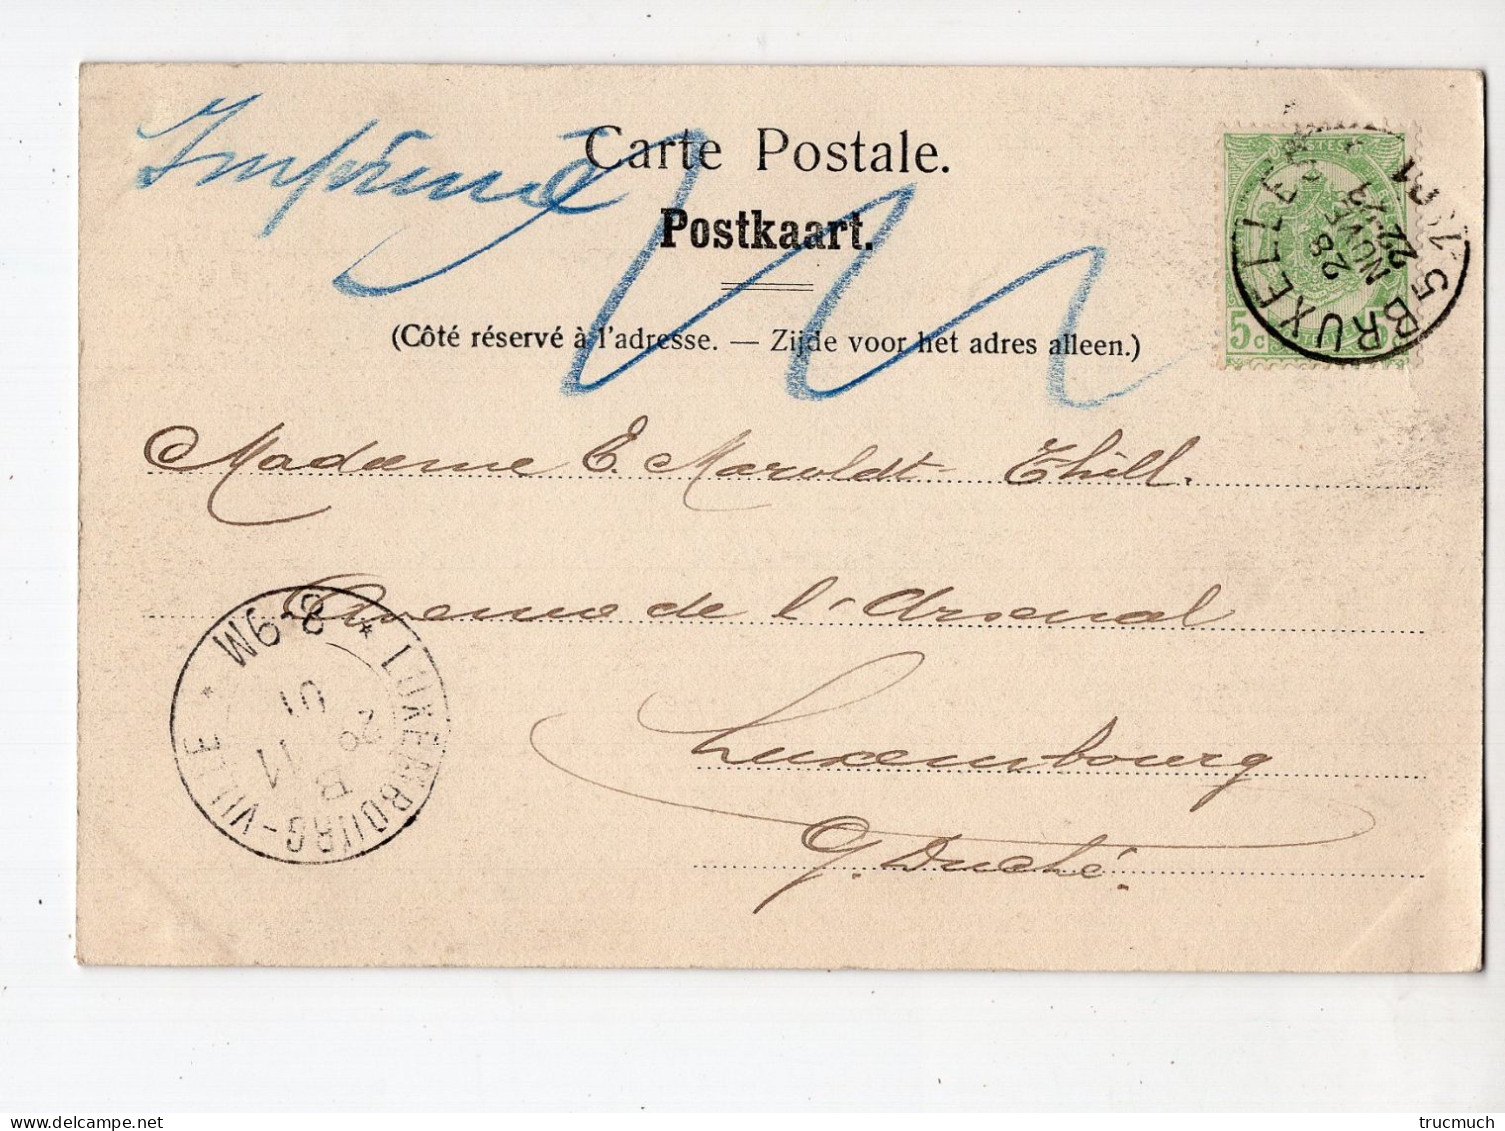 Imprimé
Carte Postale.
Postkaart.
(Côté réservé à l'adresse. — Zijde voor het adres alleen.)
5 BRUXELLES
28
NOVE
22
5 c
Madame E. Maroldt-Thill.
Avenue de l'Arsenal
Luxembourg
G. Duché.
* LUXEMBOURG-VILLE *
8-9M
29 11
01
B
trucmuch